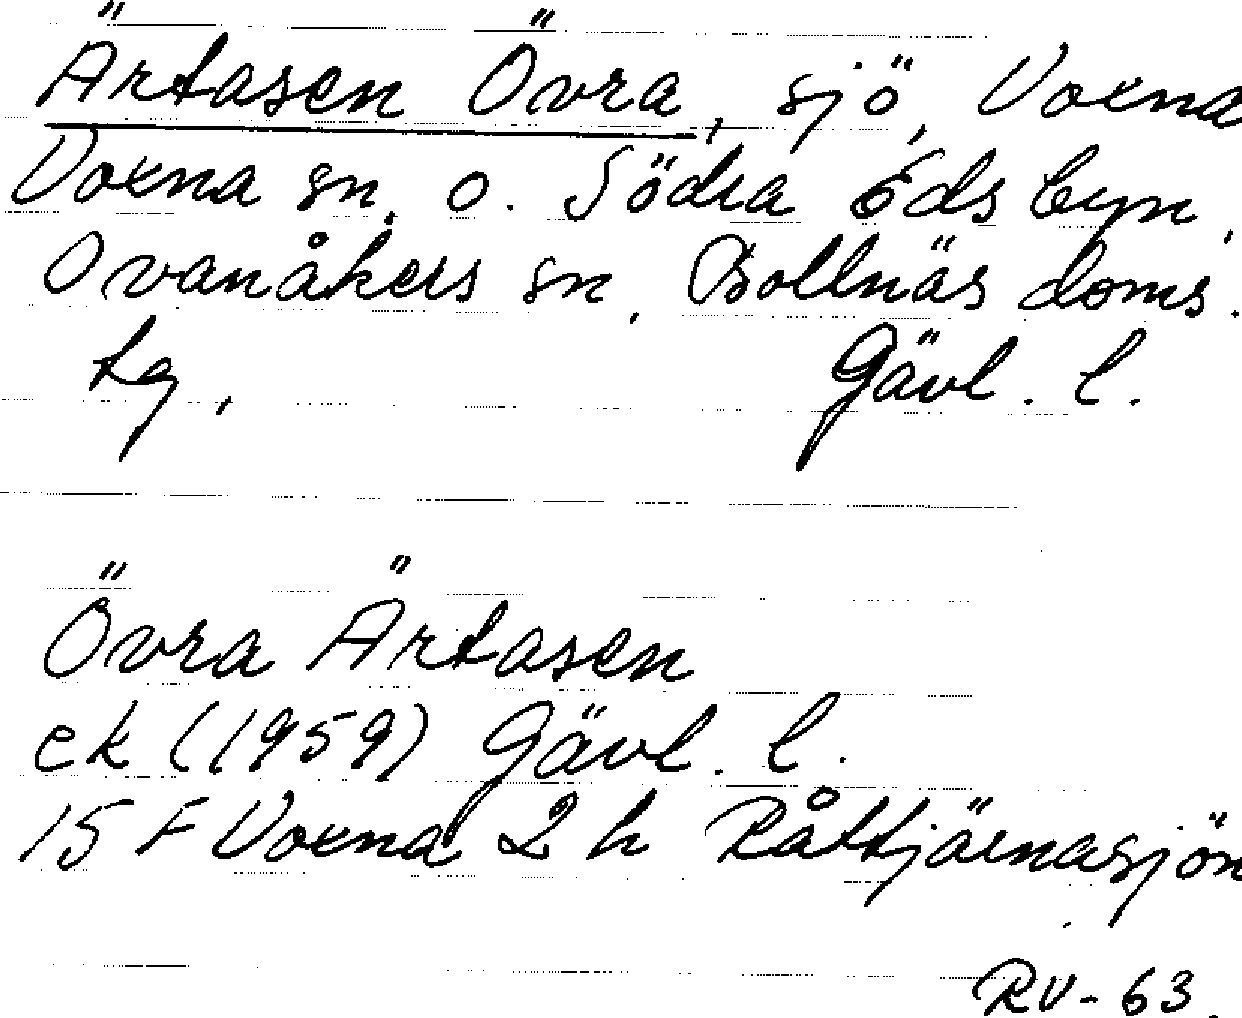 Ärtasen Övra, sjö, Voxna
Voxna sn. o. Södra Edsbyn,
Ovanåkers sn, Bollnäs doms.
tg, Gävl. l.
Övra Ärtasen
ek (1959) Gävl. l.
15 F Voxna 2 h Råttjärnasjön
RV-63.